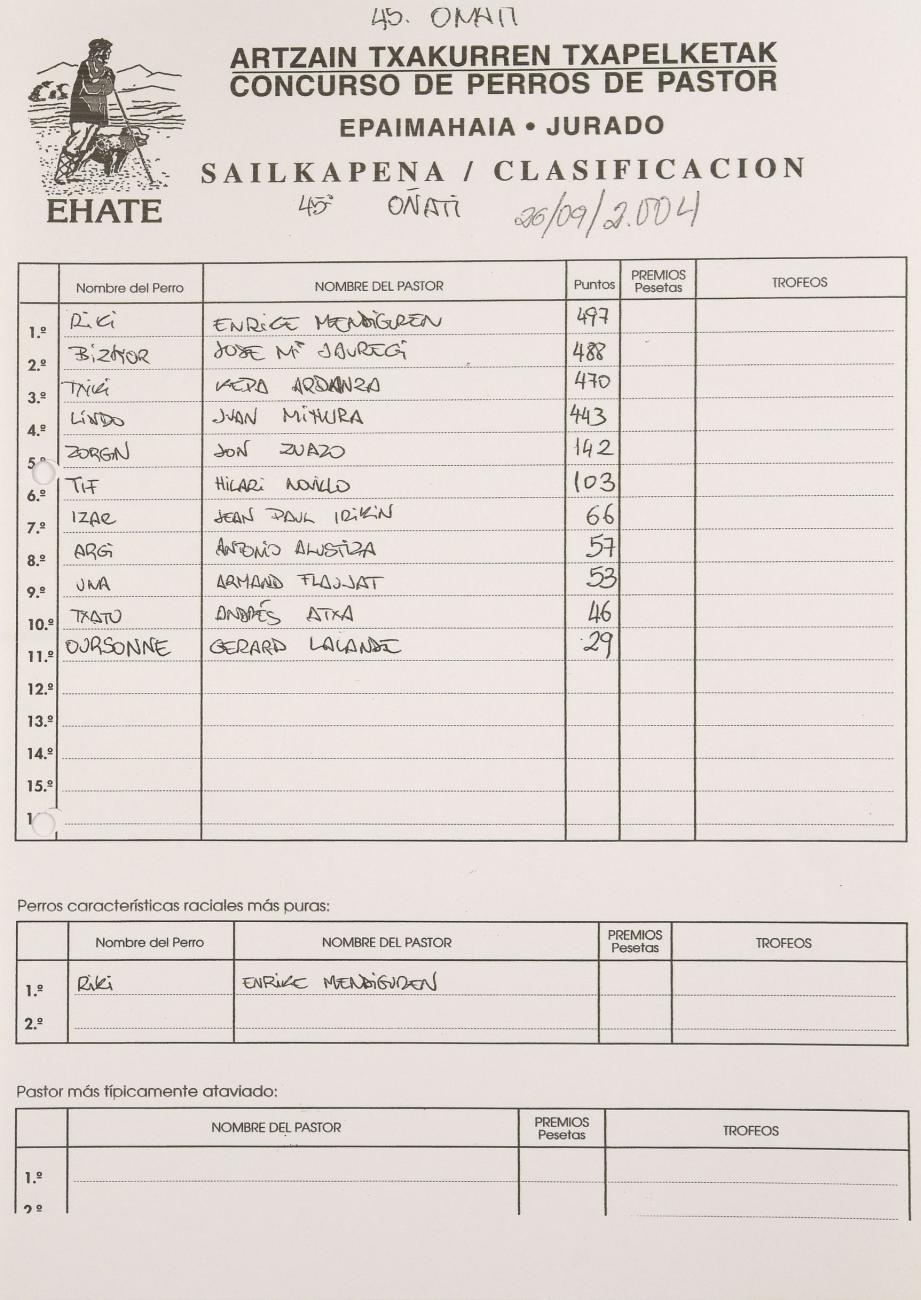 45. OÑATI
ARTZAIN TXAKURREN TXAPELKETAK
CONCURSO DE PERROS DE PASTOR
EPAIMAHAIA • JURADO
SAILKAPENA / CLASIFICACION
EHATE
45º OÑATI 26/09/2.004
Nombre del Perro NOMBRE DEL PASTOR Puntos PREMIOS Pesetas TROFEOS
1.º RiKi ENRiKE MENDiGUREN 497
2.º BiZKOR JOSE Mª JAUREGi 488
3.º TXiKi KEPA ARDANZA 470
4.º LiNDO JUAN MiHURA 443
5.º ZORGiN JON ZUAZO 142
6.º TiF HiLARi NOViLLO 103
7.º IZAR JEAN PAUL IRiKiN 66
8.º ARGi ANTONiO ALUSTiZA 57
9.º UNA ARMAND FLAUJAT 53
10.º TXATO ANDRÉS ATXA 46
11.º OURSONNE GERARD LALANDE 29
12.º
13.º
14.º
15.º
Perros características raciales más puras:
Nombre del Perro NOMBRE DEL PASTOR PREMIOS Pesetas TROFEOS
1.º RiKi ENRiKE MENDiGUREN
2.º
Pastor más típicamente ataviado:
NOMBRE DEL PASTOR PREMIOS Pesetas TROFEOS
1.º
2.º